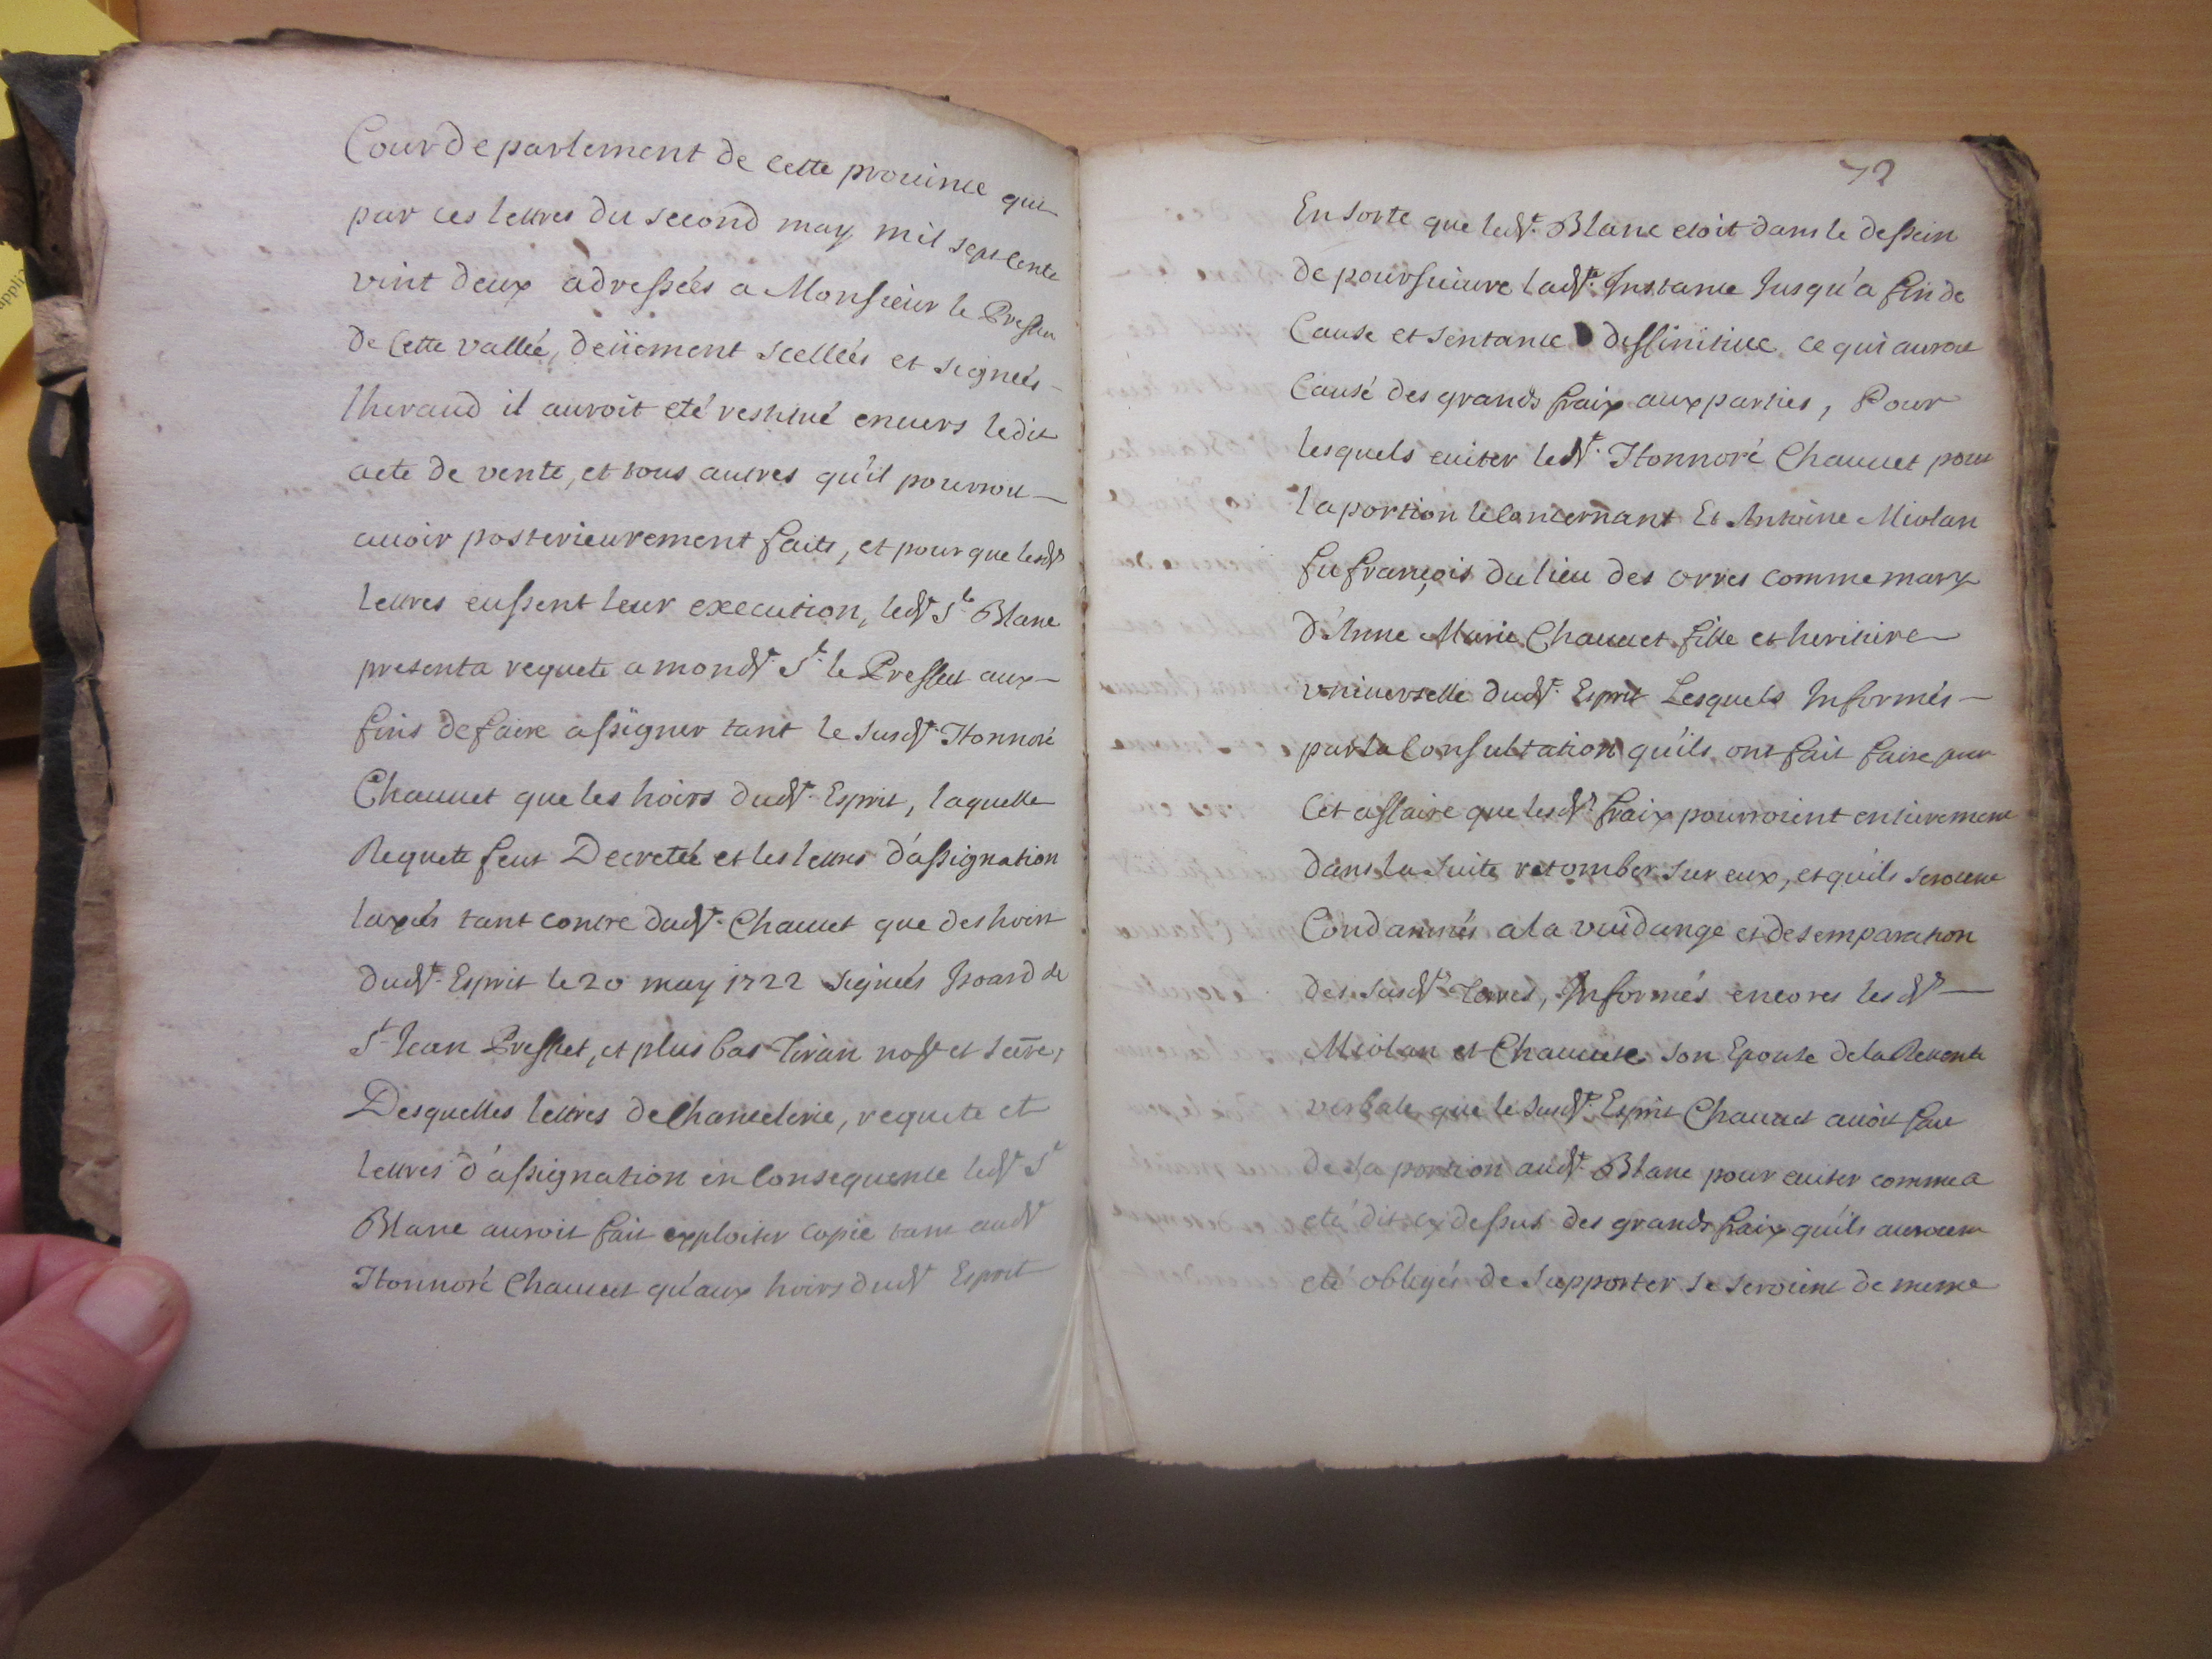 Cour de parlement de cette prouince que
par ces lettres du second may mil sept cents
vint deux adressées a Monsieur le Preffeu
de cette vallée, deüement scellées et signées
lheraud il auroit eté restitué enuers ledit
acte de vente, et tous autres qu'il pourroit
auoir posterieurement faits, et pour que lesdts
lettres eussent leur execution, ledt Sr Blanc
presenta requete a mondt Sr le Preffect aux
fins de faire assigner tant le susdt Honnoré
Chauuet que les hoirs dudt Esprit, laquelle
Requete feut Decretée et les lettres d'assignation
laxées tant contre dudt Chauuet que des hoirs
dudt Esprit le 20 may 1722 signées Isoard de
St Jean Preffet, et plus bas Tiran
Desquelles lettres de Chancelerie, requete et
lettres d'assignation en Consequence ledt Sr
Blanc auroit fait exploiter copie tant audt
Honnoré Chauuet qu'aux hoirs dudt Esprit
72
En sorte que ledt Blanc etoit dans le dessein
de poursuiure ladte Instance Jusqu'a fin de
Cause et sentance deffinitiue ce qui auroit
Causé des grands fraix aux parties, Pour
lesquels euiter ledt Honnoré Chauuet pour
la portion le Concernant Et Antoine Miolan
fu françois du lieu des orres comme mary
d'Anne Marie Chauuet fille et heritiere
vniuerselle dudt Esprit Lesquels Informés
par la Consultation qu'ils ont fait faire sur
Cet affaire que lesdts fraix pourroient entierement
dans la suite retomber sur eux, et qu'ils seroient
Condamnés a la vuidange et desemparation
des susdts Terres, Informés encores lesdts
Miolan et Chauuete son Epouse de la Reuente
verbale que le susdt Esprit Chauuet auoit fait
de sa portion audt Blanc pour euiter comme a
eté dit cy dessus des grands fraix qu'ils auroient
eté obligés de supporter se seroient de meme